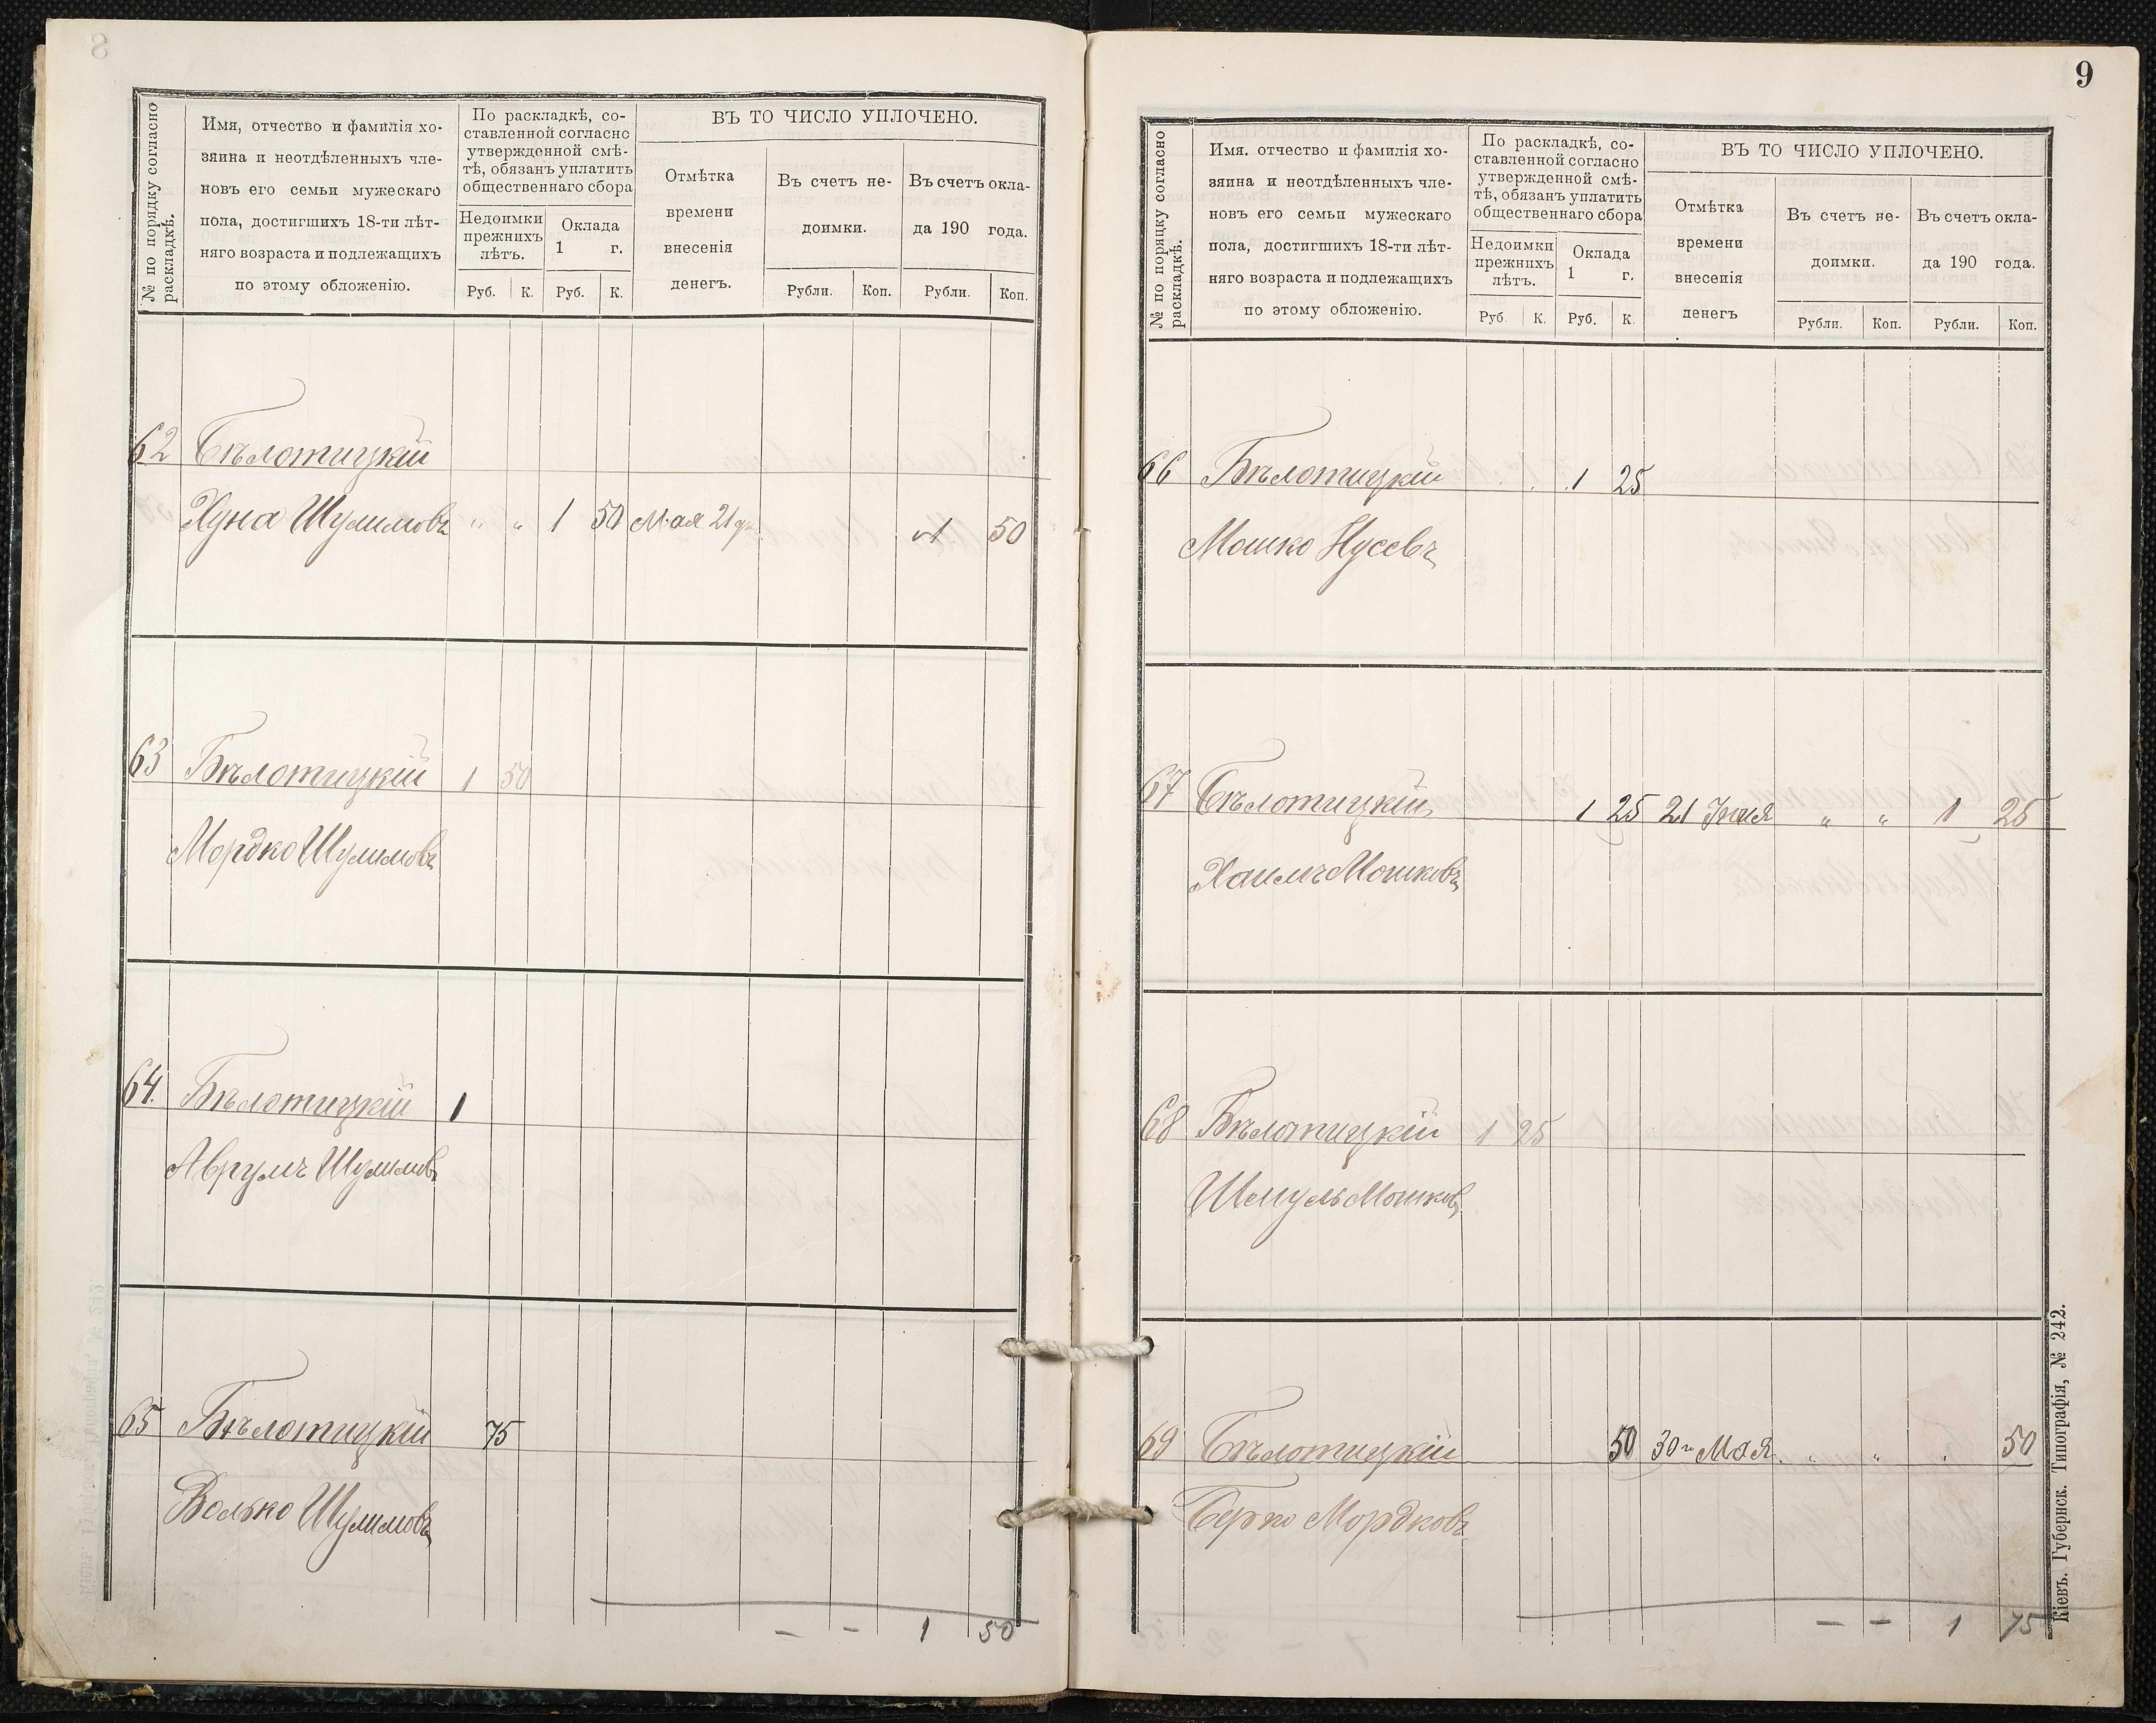 № по порядку согласно
раскладкѣ.
Имя, отчество и фамилія хо-
зяина и неотдѣленныхъ чле-
новъ его семьи мужескаго
пола, достигшихъ 18-ти лѣт-
няго возраста и подлежащихъ
по этому обложенію.
По раскладкѣ, со-
ставленной согласно
утвержденной смѣ-
тѣ, обязанъ уплатить
общественнаго сбора
Недоимки
прежнихъ
лѣтъ.
Оклада
1 г.
Руб. К. Руб. К.
ВЪ ТО ЧИСЛО УПЛОЧЕНО.
Отмѣтка
времени
внесенія
денегъ.
Въ счетъ не-
доимки.
Въ счетъ окла-
да 190 года.
Рубли. Коп. Рубли. Коп.
62 Бѣлотицкій
Худна Шулимовъ " " 1 50 Мая 21 1 50
63 Бѣлотицкій 1 50
Мордко Шулимовъ
64. Бѣлотицкій 1
Аврумъ Шулимовъ
65 Бѣлотицкій 75
Волько Шулимовъ
— — 1 50
9
№ по порядку согласно
раскладкѣ.
Имя. отчество и фамилія хо-
зяина и неотдѣленныхъ чле-
новъ его семьи мужескаго
пола, достигшихъ 18-ти лѣт-
няго возраста и подлежащихъ
по этому обложенію.
По раскладкѣ, со-
ставленной согласно
утвержденной смѣ-
тѣ, обязанъ уплатить
общественнаго сбора
Недоимки
прежнихъ
лѣтъ.
Оклада
1 г.
Руб. К. Руб. К.
ВЪ ТО ЧИСЛО УПЛОЧЕНО.
Отмѣтка
времени
внесенія
денегъ
Въ счетъ не-
доимки.
Въ счетъ окла-
да 190 года.
Рубли. Коп. Рубли. Коп.
66 Бѣлотицкій 1 25
Мошко Нусевъ
67 Бѣлотицкій 1 25 21 Іюня " " 1 25
Хаимъ Мошковъ
68 Бѣлотицкій 1 25
Шмуль Мошковъ
69 Бѣлотицкій 50 30го Мая " " 50
Берко Мордковъ
— — 1 75
Кіевъ. Губернск. Типографія, № 242.